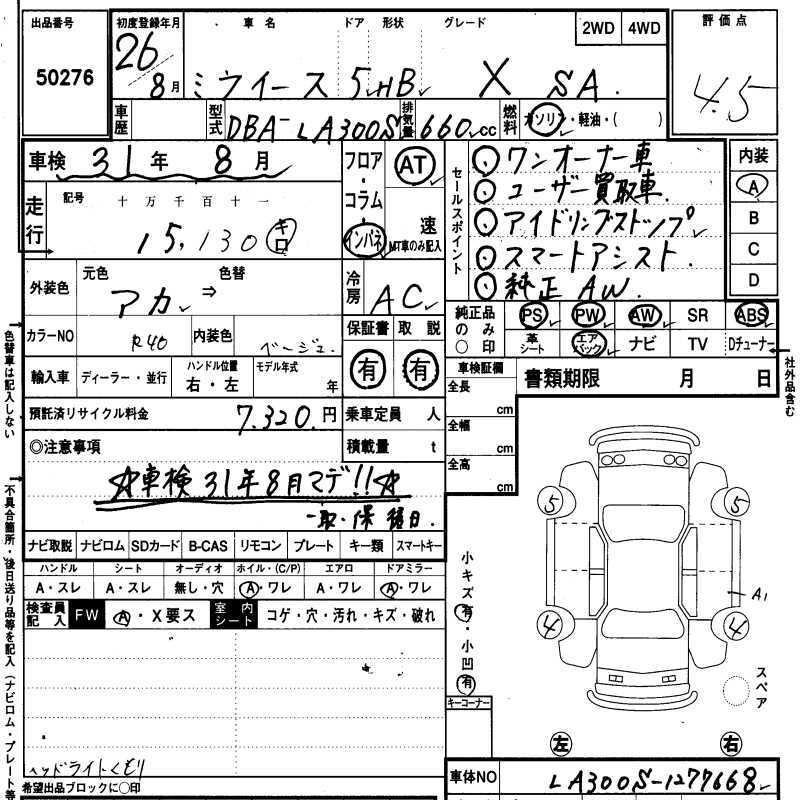 出品番号
50276
初度登録年月
26
8月
車名 ドア 形状 グレード
ミライース 5 HB X SA
2WD 4WD
評価点
4.5
車歴
型式
DBA-LA300S
排気量
660cc
燃料
ガソリン・軽油・( )
車検 31年 8月
走行
記号 十万千百十一
15,130 キロ
フロア・コラム・インパネ
AT
速
MT車のみ記入
セールスポイント
ワンオーナー車
ユーザー買取車
アイドリングストップ
スマートアシスト
純正AW
内装
A
B
C
D
外装色
元色 色替
アカ ⇒
冷房
AC
カラーNO
R40
内装色
ベージュ
保証書 取説
有 有
純正品のみ○印
PS PW AW SR ABS
革シート エアバック ナビ TV Dチューナー
輸入車
ディーラー・並行
ハンドル位置
右・左
モデル年式
年
車検証欄
書類期限 月 日
全長
cm
全幅
cm
全高
cm
預託済リサイクル料金 7,320円
乗車定員 人
積載量 t
◎注意事項
☆車検31年8月マデ!!☆
一取・保 後日.
ナビ取説 ナビロム SDカード B-CAS リモコン プレート キー類 スマートキー
ハンドル シート オーディオ ホイル・(C/P) エアロ ドアミラー
A・スレ A・スレ 無し・穴 A・ワレ A・ワレ A・ワレ
検査員記入
FW
A・X要ス
室内シート
コゲ・穴・汚れ・キズ・破れ
ヘッドライトくもり
希望出品ブロックに○印
色替車は記入しない
不具合箇所・後日送り品等を記入(ナビロム・プレート等
社外品含む
小キズ有・小凹有
キーコーナー
5 5
4 4
A1
スペア
左 右
車体NO
LA300S-1277668